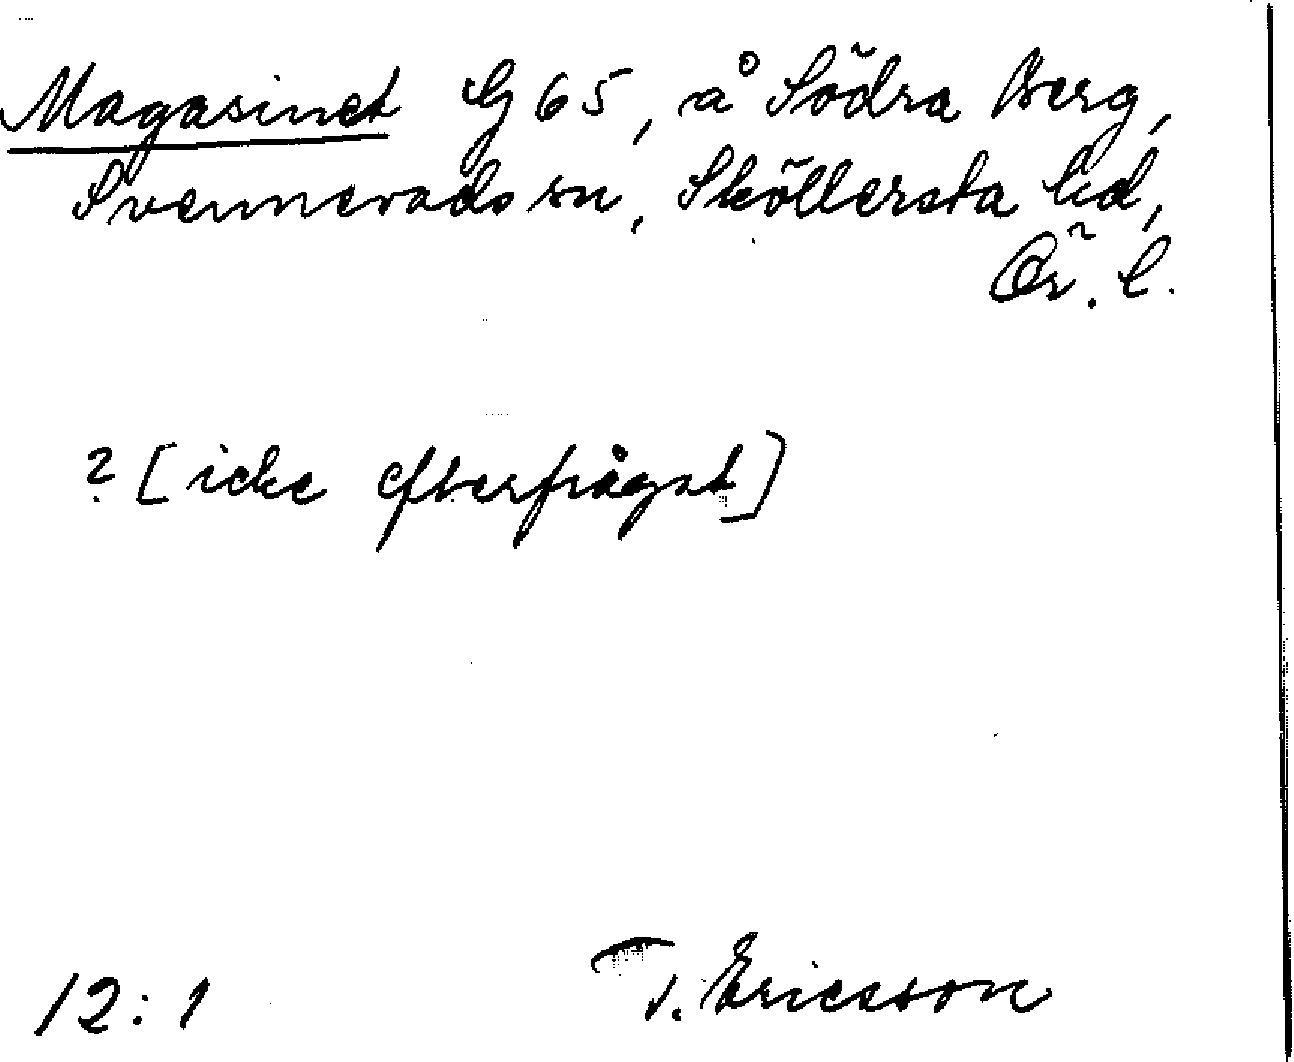 Magasinet G 65, å Södra Berg,
Svennevads sn, Sköllersta hd,
Ör. l.
? [icke efterfrågat]
12:1 T. Ericsson